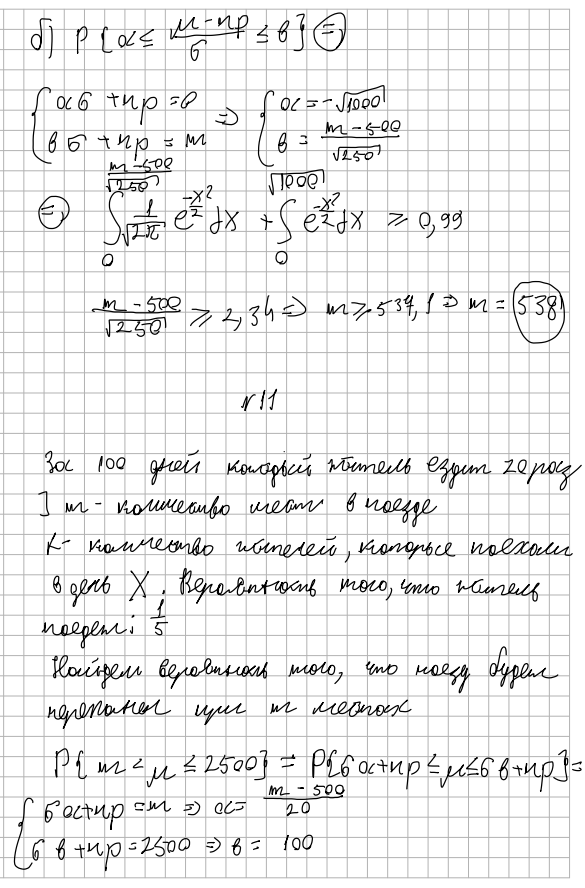 б) P{a ≤ (μ - np)/σ ≤ b} =
{ aσ + np = 0 ⇒ { a = -√1000
{ bσ + np = m { b = (m - 500)/√250
= ∫₀^((m - 500)/√250) 1/√2π e^(-x²/2) dx + ∫₀^(√1000) e^(-x²/2) dx ≥ 0,99
(m - 500)/√250 ≥ 2,34 ⇒ m ≥ 537,1 ⇒ m = 538
№11
За 100 дней каждый житель ездит 20 раз
] m - количество мест в поезде
K - количество жителей, которые поехали
в день X. Вероятность того, что житель
поедет: 1/5
Найдем вероятность того, что поезд будет
переполнен при m местах
P{m < μ ≤ 2500} = P{σa + np ≤ μ ≤ σb + np} =
{ σa + np = m ⇒ a = (m - 500)/20
{ σb + np = 2500 ⇒ b = 100